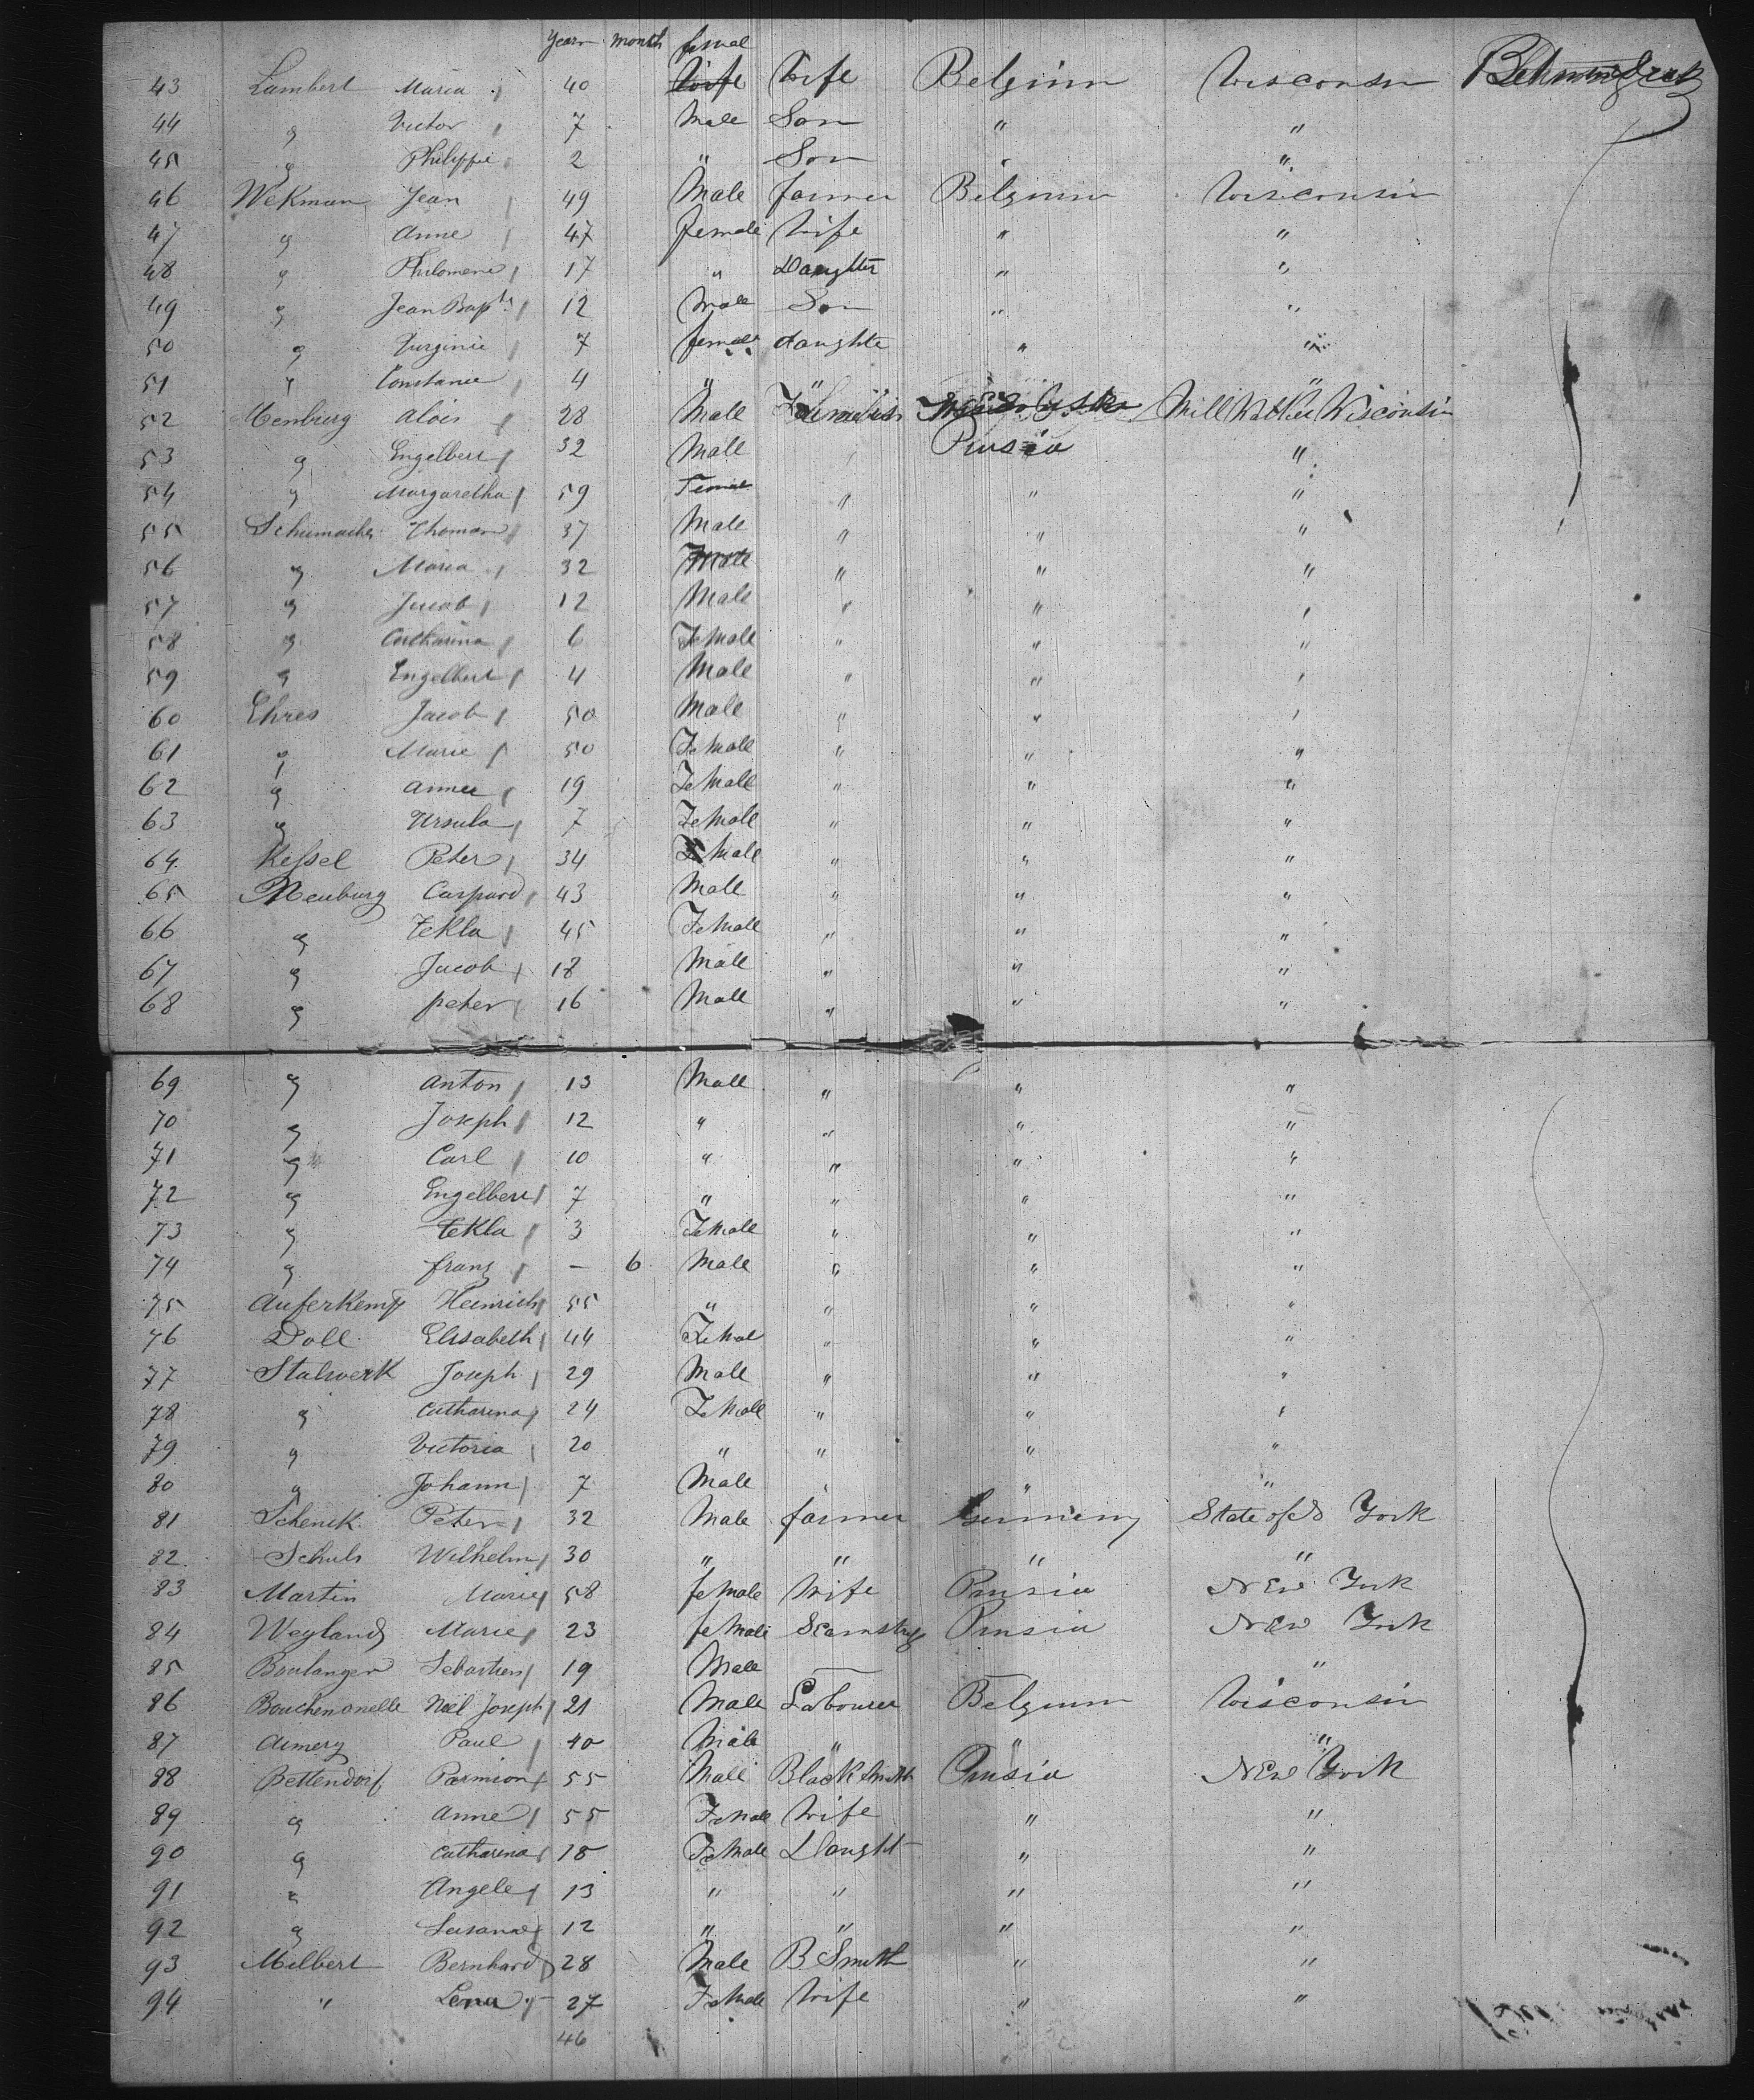 Years month female
43 Lambert Maria 40 Wife Wife Belgium Wisconsin
44 " Victor 7 Male Son " "
45 " Philippe 2 " Son " "
46 Wekman Jean 49 Male farmer Belgium Wisconsin
47 " Anne 47 female Wife " "
48 " Philomene 17 " Daughter " "
49 " Jean Bapte 12 Male Son " "
50 " Virginie 7 female daughte " "
51 " Constance 4 " " "
52 Menburg Alois 28 Male MillWalkee Wisconsin
53 " Engelbert 32 Male Prusia "
54 " Margaretha 59 Female " " "
55 Schumacher Thomas 37 Male " " "
56 " Maria 32 " " "
57 " Jacob 12 Male " " "
58 " Catharina 6 FeMale " " "
59 " Engelbert 4 Male " " "
60 Ehres Jacob 50 Male " " "
61 " Marie 50 FeMale " " "
62 " 19 FeMale " " "
63 " Ursula 7 FeMale " " "
64 Kessel Peter 34 Male " " "
65 Neuburg Caspard 43 Male " " "
66 " Tekla 45 FeMale " " "
67 " Jacob 18 Male " " "
68 " peter 16 Male " " "
69 " Anton 13 Male " " "
70 " Joseph 12 " " " "
71 " Carl 10 " " " "
72 " Engelbert 7 " " " "
73 " Tekla 3 FeMale " " "
74 " franz — 6 Male " " "
75 Auferkemp Heinrich 55 " " " "
76 Doll Elisabeth 44 FeMal " " "
77 Stalwerk Joseph 29 Male " " "
78 " Catharina 24 FeMale " " "
79 " Victoria 20 " " " "
80 " Johann 7 Male " " "
81 Schenck Peter 32 Male farmer Germany State of York
82 Schuls Wilhelm 30 " " " "
83 Martin Marie 58 feMale Wife Prusia New York
84 Weyland Marie 23 feMale Prusia New York
85 Boulanger Sebastien 19 Male — — "
86 Bouchenonelle Noël Joseph 21 Male Labourer Belgium Wisconsin
87 Aimery Paul 40 Male " " "
88 Bettendorf 55 Male BlackSmith Prusia New York
89 " Anne 55 FeMale Wife " "
90 " Catharina 18 FeMale Daught " "
91 " Angele 13 " " " "
92 " Susanne 12 " " " "
93 Milbert Bernhard 28 Male B Smith " "
94 " Lena 27 FeMale Wife " "
46